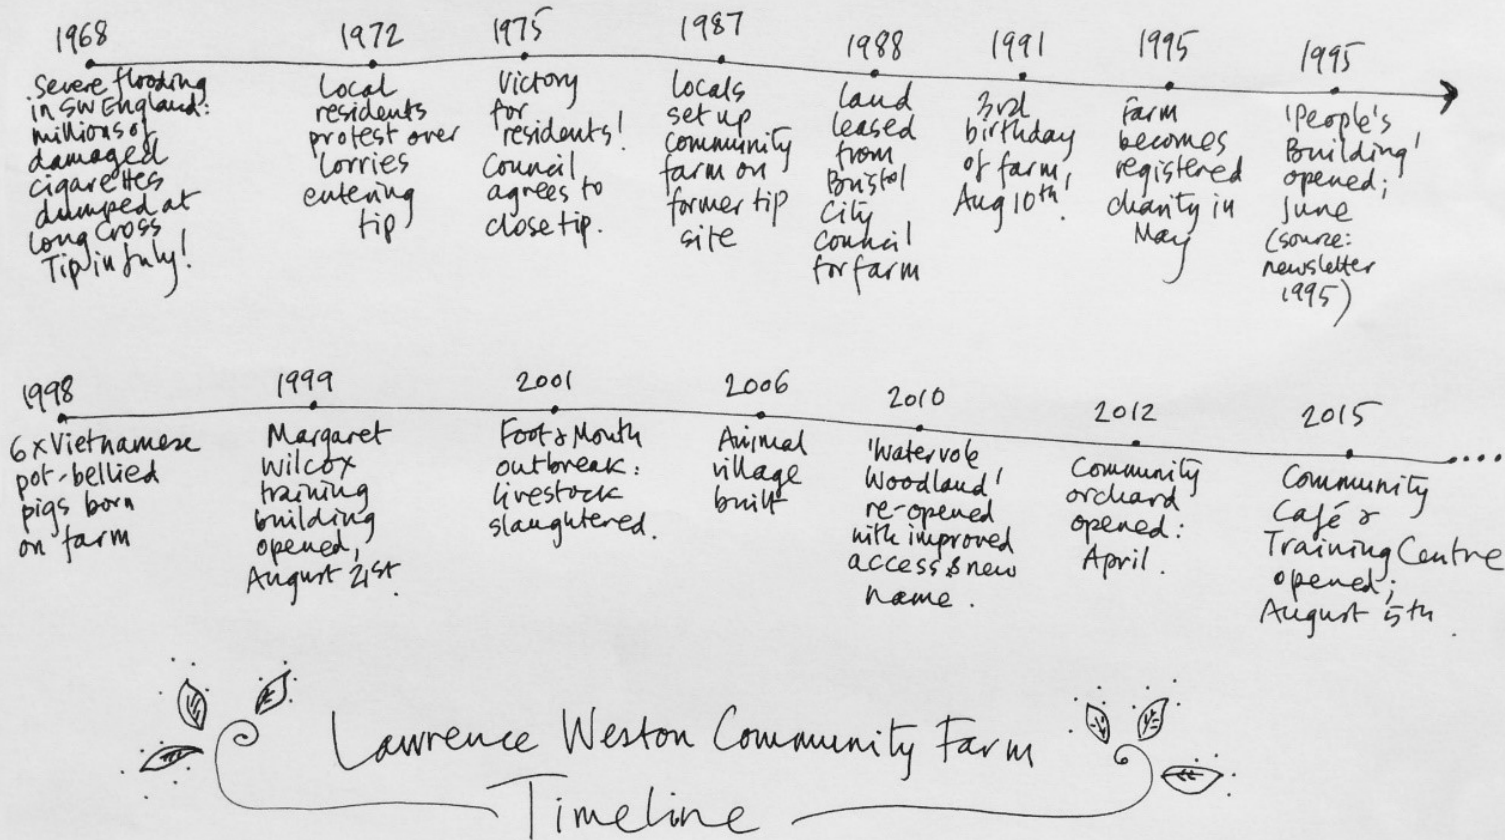 1968
Severe flooding
in SW England:
millions of
damaged
cigarettes
dumped at
Long Cross
Tip in July!
1972
Local
residents
protest over
lorries
entering
tip
1975
Victory
for
residents!
Council
agrees to
close tip.
1987
Locals
set up
community
farm on
former tip
site
1988
Land
leased
from
Bristol
City
Council
for farm
1991
3rd
birthday
of farm,
Aug 10th!
1995
Farm
becomes
registered
charity in
May
1995
'People's
Building'
opened;
June
(source:
newsletter
1995)
1998
6 x Vietnamese
pot-bellied
pigs born
on farm
1999
Margaret
Wilcox
training
building
opened,
August 21st.
2001
Foot & Mouth
outbreak:
livestock
slaughtered.
2006
Animal
village
built
2010
'Watervole
Woodland'
re-opened
with improved
access & new
name.
2012
Community
orchard
opened:
April.
2015
Community
Café &
Training Centre
opened;
August 5th.
Lawrence Weston Community Farm
Timeline